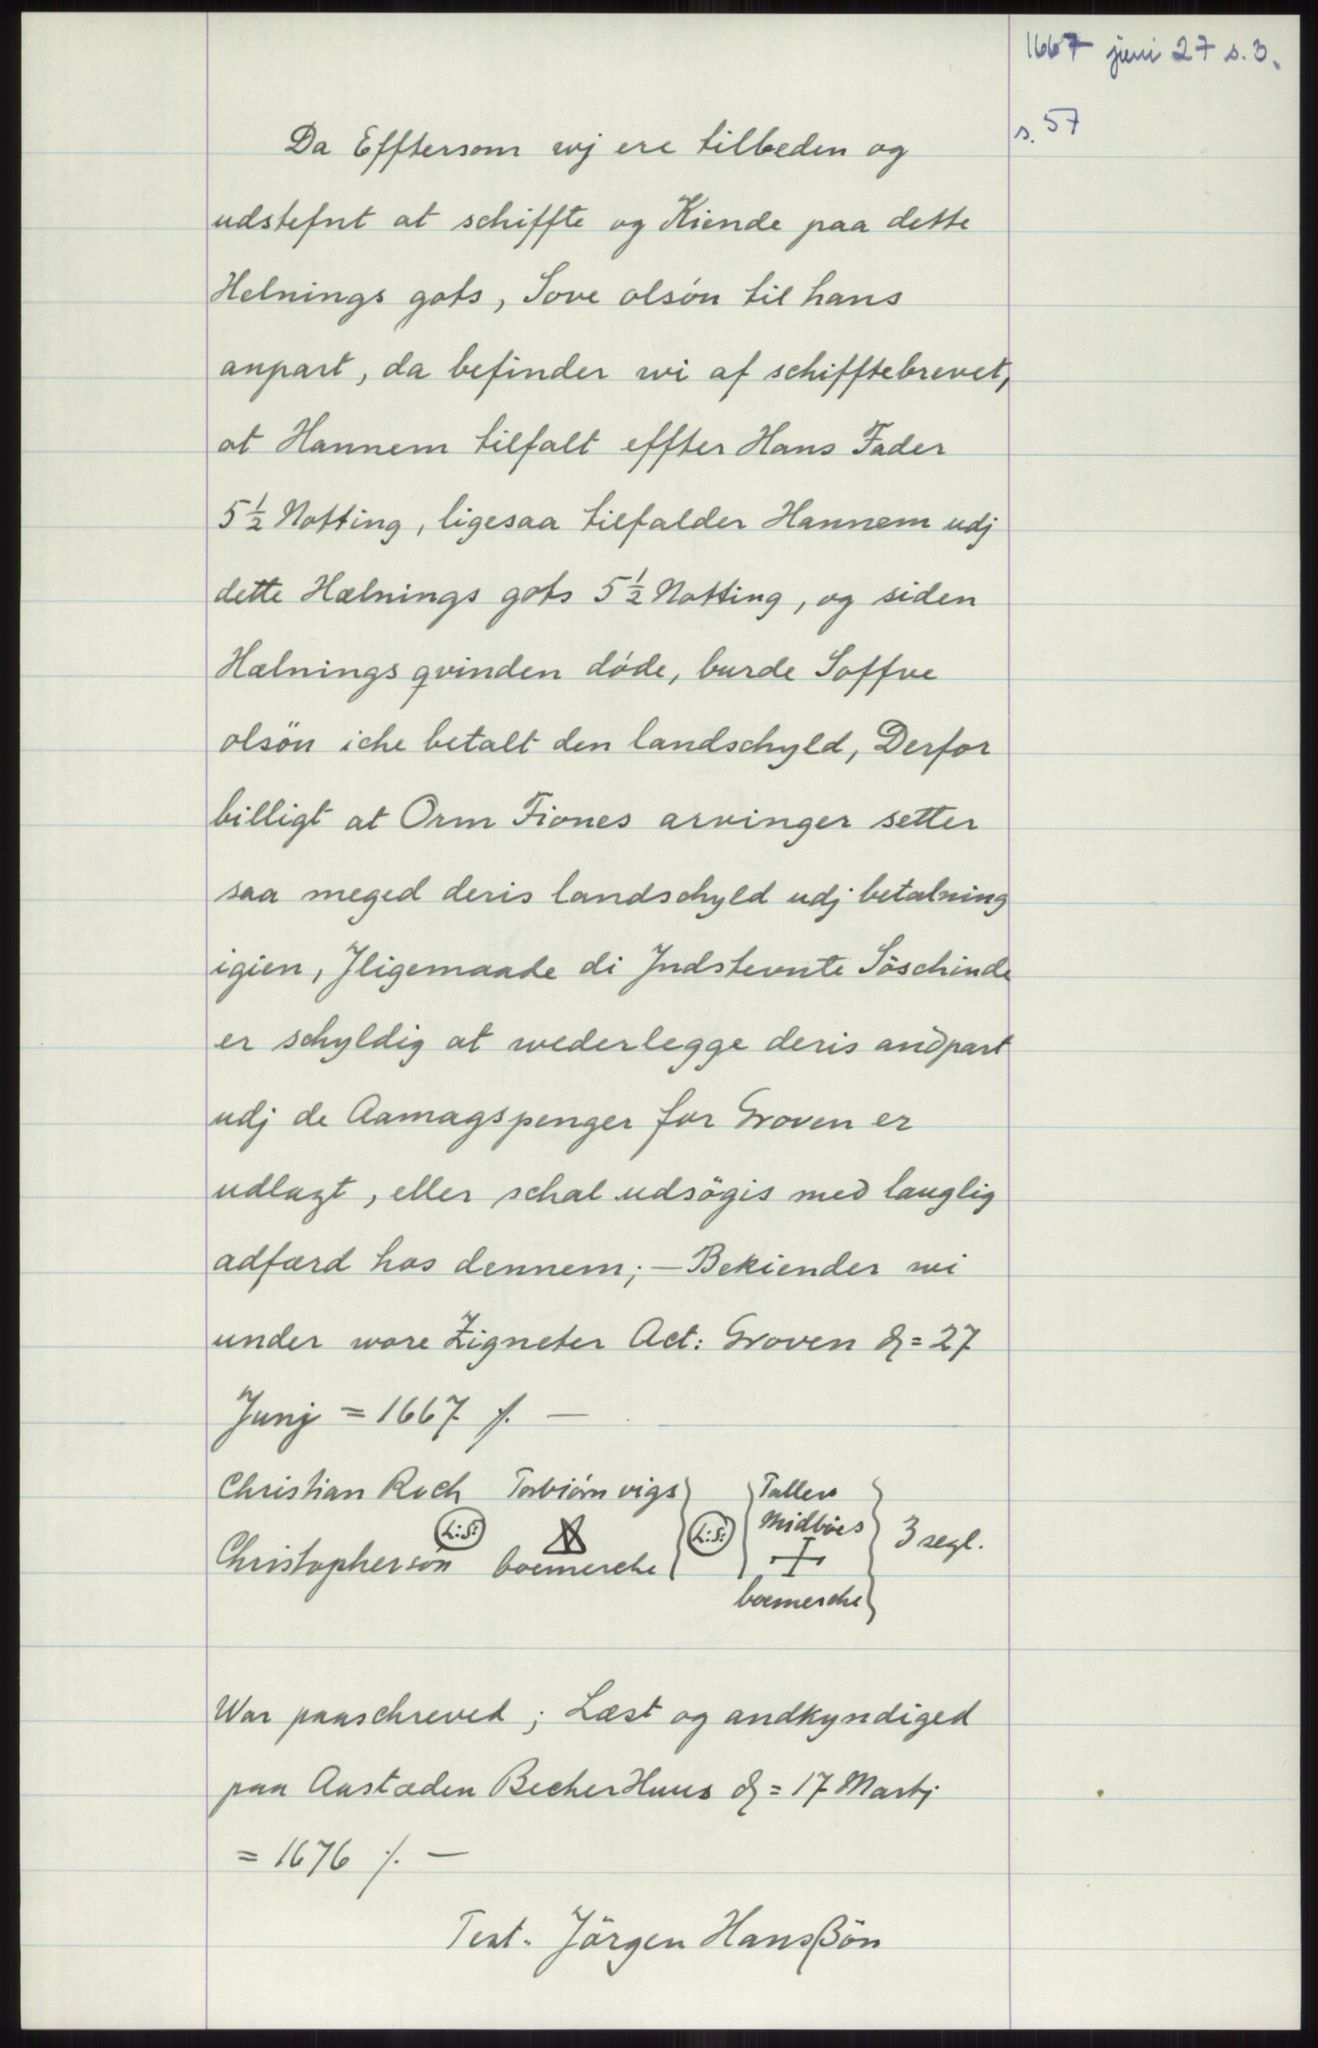 1667 juni 27 s. 3.
s. 57
Da Efftersom wj ere tilbeden og
udstefnt at schiffte og Kiende paa dette
Helnings gots, Sove olsón til hans
anpart, da befinder wi af schifftebrevet,
at Hannem tilfalt effter Hans Fader
5½ Notting, ligesaa tilfalder Hannem udj
dette Hælnings gots 5½ Notting, og siden
Hælnings qvinden dóde, burde Soffve
olsön iche betalt den landschyld, Derfor
billigt at Orm Fiones arvinger setter
saa meged deris landschyld udj betalning
igien, Jligemaade di Jndstevnte Söschinde
er schyldig at wederlegge deris andpart
udj de Aamagspenger for Groven er
udlagt, eller schal udsögis med lauglig
adfærd hos dennem; — Bekiender wi
under wore Zigneter Act: Groven d= 27
Junj = 1667 ./. —
Christian Roch Torbiórn vigs Tallev
L:S: L:S: Midbóes 3 segl.
Christophersón boemerche
boemerche
War paaschreved ; Læst og andkyndiged
paa Aastæden BecherHuus d= 17 Martj
= 1676 ./. —
Test. Jörgen Hansßön